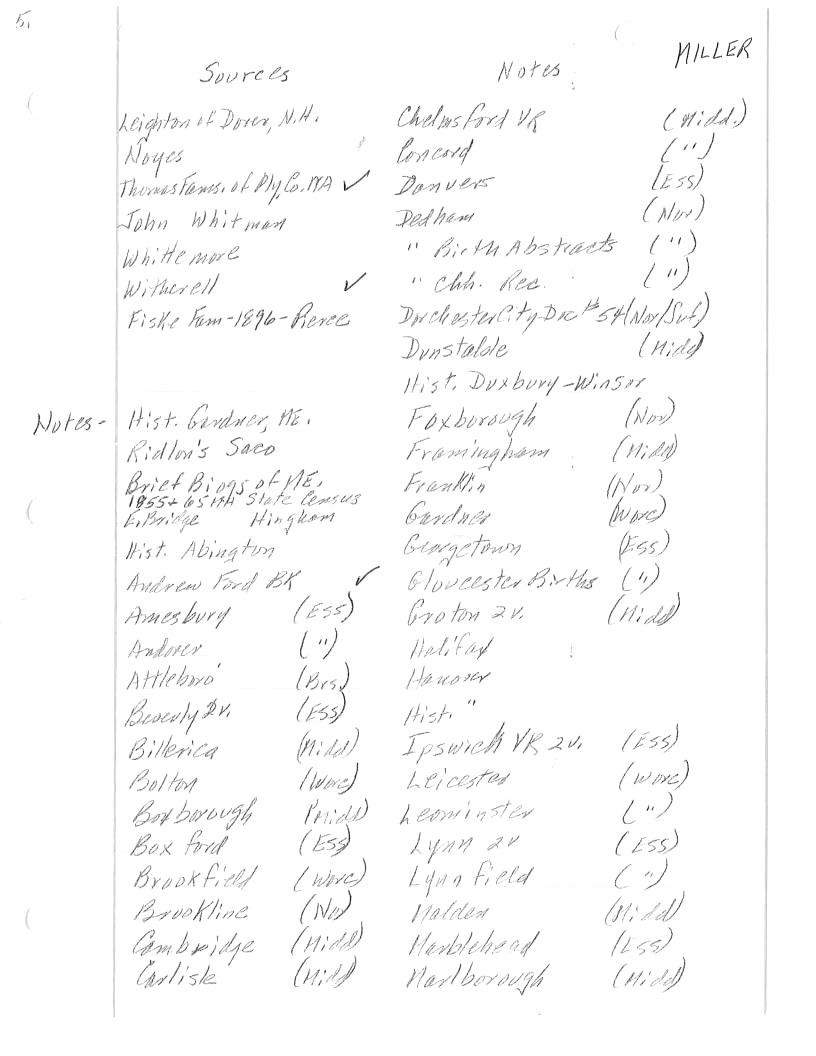 5.
MILLER
Sources
Leighton of Dover, N.H.
Noyes
Thomas Fams. of Ply. Co. MA ✓
John Whitman
Whittemore
Witherell ✓
Fiske Fam-1896-Pierce
Notes-
Hist. Gardner, ME.
Ridlon's Saco
Brief Biogs of ME.
1855+65 MA State Census
E. Bridge Hingham
Hist. Abington
Andrew Ford BK ✓
Amesbury (Ess)
Andover (")
Attleboro (Brs)
Beverly 2v. (ESS)
Billerica (Midd)
Bolton (Worc)
Boxborough (Midd)
Boxford (ESS)
Brookfield (Worc)
Brookline (Nor)
Cambridge (Midd)
Carlisle (Midd)
Notes
Chelmsford VR (Midd.)
Concord (")
Danvers (ESS)
Dedham (Nor)
" Birth Abstracts (")
" Chh. Rec. (")
Dorchester City Doc #54 (Nor/Suf)
Dunstable (Midd)
Hist. Duxbury-Winsor
Foxborough (Nor)
Framingham (Midd)
Franklin (Nor)
Gardner (Worc)
Georgetown (Ess)
Gloucester Births (")
Groton 2v. (Midd)
Halifax
Hanover
Hist. "
Ipswich VR 2v. (ESS)
Leicester (Worc)
Leominster (")
Lynn 2v (ESS)
Lynnfield (")
Malden (Midd)
Marblehead (ESS)
Marlborough (Midd)